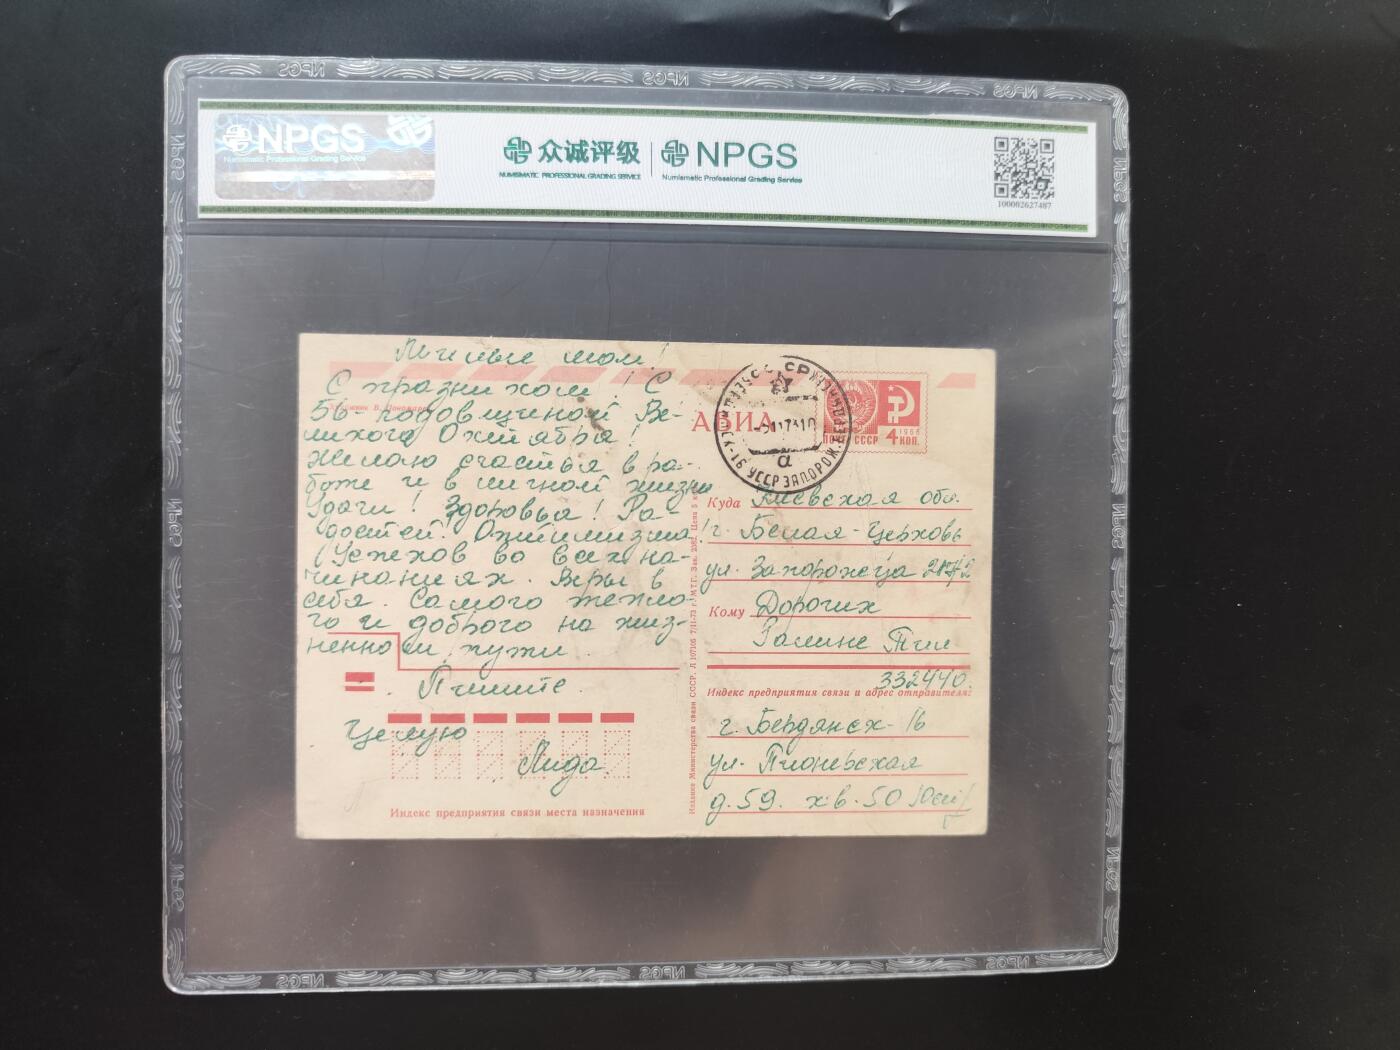 NPGS
Numismatic Professional Grading Service
众诚评级
NUMISMATIC PROFESSIONAL GRADING SERVICE
NPGS
Numismatic Professional Grading Service
100002627487
Милые мои!
С праздником! С
56-годовщиной Ве-
ликого Октября!
Желаю счастья в ра-
боте и в личной жизни
Удачи! Здоровья! Ра-
достей. Оптимизма!
Успехов во всех на-
чинаниях. Веры в
себя. Самого тепло-
го и доброго на жиз-
ненном пути.
Пишите.
Целую
Лида.
Индекс предприятия связи места назначения
АВИА
ПОЧТА СССР 4 КОП.
1966
УССР ЗАПОРОЖ.
а
Куда Киевская обл.
г. Белая-Церковь
ул. Запорожца
Кому Дорогих
Галине
332440.
Индекс предприятия связи и адрес отправителя:
г. Бердянск-16
ул. Пионерская
д. 59. кв. 50
Издание Министерства связи СССР.